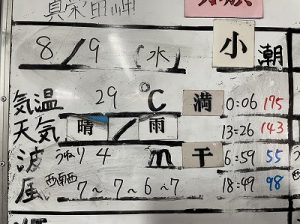 真栄田岬
8/9 (水) 小潮
気温 29 ℃ 満 0:06 175
天気 晴/雨 13:26 143
波 うねり 4 m 干 6:59 55
風 西南西 7~7~6~7 18:49 98